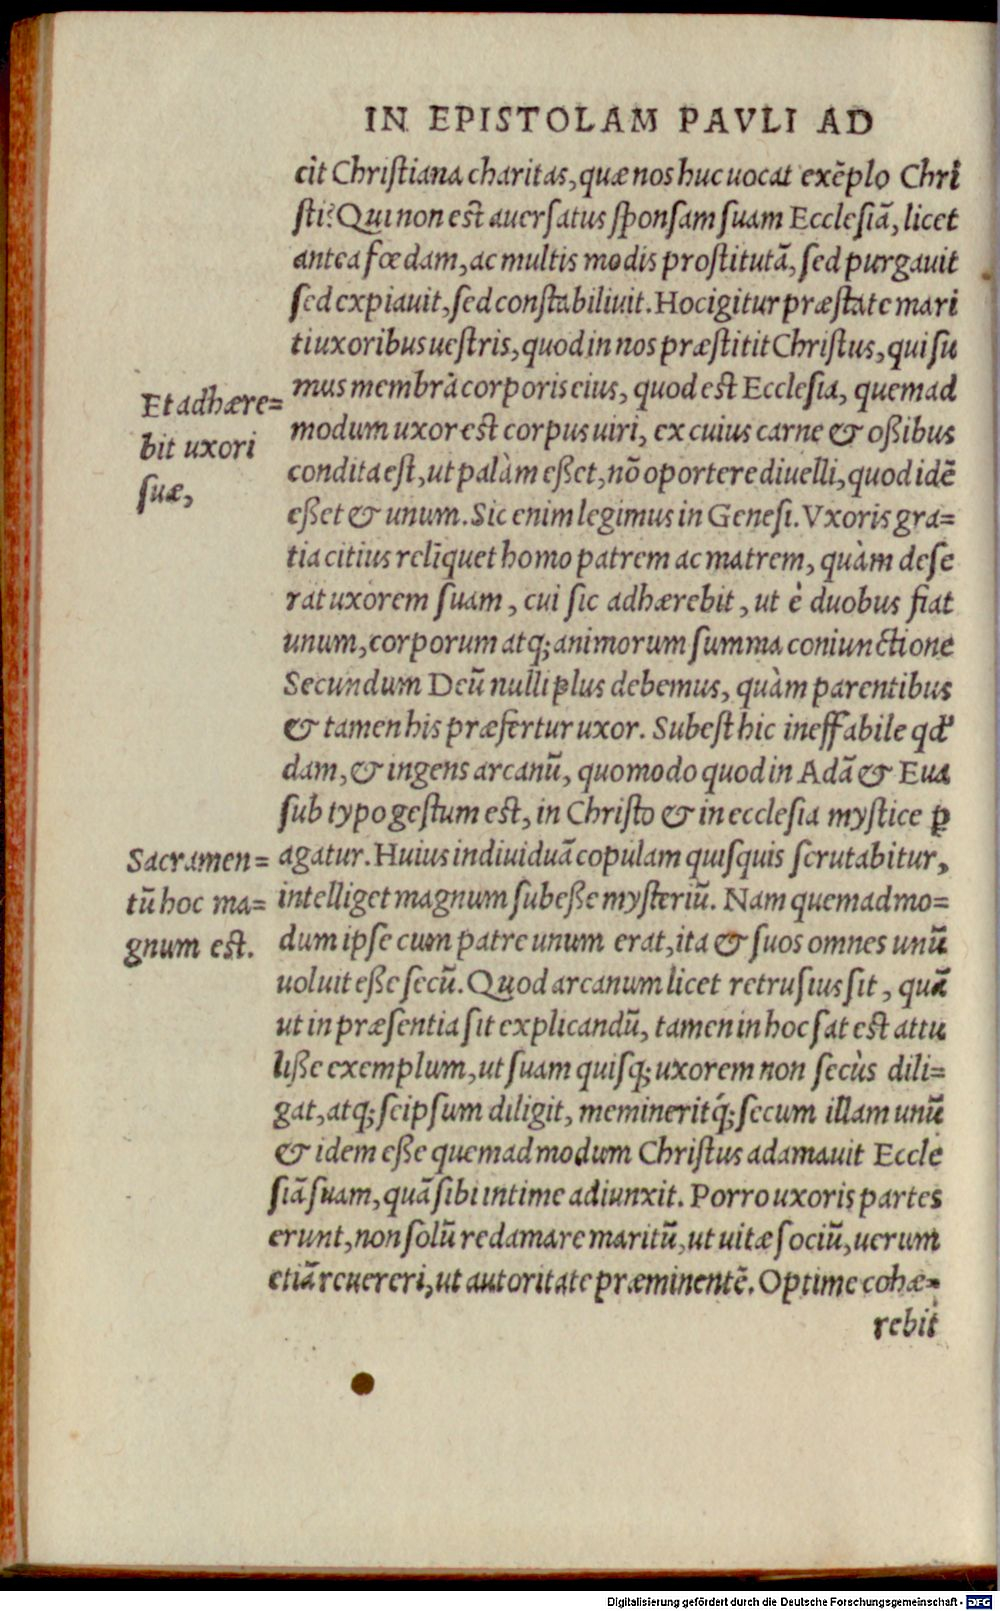 IN EPISTOLAM PAVLI AD
cit Christiana charitas, quæ nos huc uocat exẽplo Chri
sti? Qui non est auersatus sponsam suam Ecclesiã, licet
antea fœdam, ac multis modis prostitutã, sed purgauit
sed expiauit, sed constabiliuit. Hoc igitur præstate mari
ti uxoribus uestris, quod in nos præstitit Christus, qui su
mus membra corporis eius, quod est Ecclesia, quemad
Et adhære=
bit uxori
suæ,
modum uxor est corpus uiri, ex cuius carne & oßibus
condita est, ut palàm eßet, nõ oportere diuelli, quod idẽ
eßet & unum. Sic enim legimus in Genesi. Vxoris gra=
tia citius reliquet homo patrem ac matrem, quàm dese
rat uxorem suam, cui sic adhærebit, ut è duobus fiat
unum, corporum atq; animorum summa coniunctione
Secundum Deũ nulli plus debemus, quàm parentibus
& tamen his præfertur uxor. Subest hic ineffabile qd'
dam, & ingens arcanũ, quomodo quod in Adã & Eua
sub typo gestum est, in Christo & in ecclesia mystice ꝑ
Sacramen=
tũ hoc ma=
gnum est.
agatur. Huius indiuiduã copulam quisquis scrutabitur,
intelliget magnum subeße mysteriũ. Nam quemadmo=
dum ipse cum patre unum erat, ita & suos omnes unũ
uoluit eße secũ. Quod arcanum licet retrusius sit, quã
ut in præsentia sit explicandũ, tamen in hoc sat est attu
liße exemplum, ut suam quisq; uxorem non secùs dili=
gat, atq; seipsum diligit, meminerit q́; secum illam unũ
& idem eße quemadmodum Christus adamauit Eccle
siã suam, quã sibi intime adiunxit. Porro uxoris partes
erunt, non solũ redamare maritũ, ut uitæ sociũ, uerum
etiã reuereri, ut autoritate præminentẽ. Optime cohæ=
rebit
Digitalisierung gefördert durch die Deutsche Forschungsgemeinschaft - DFG